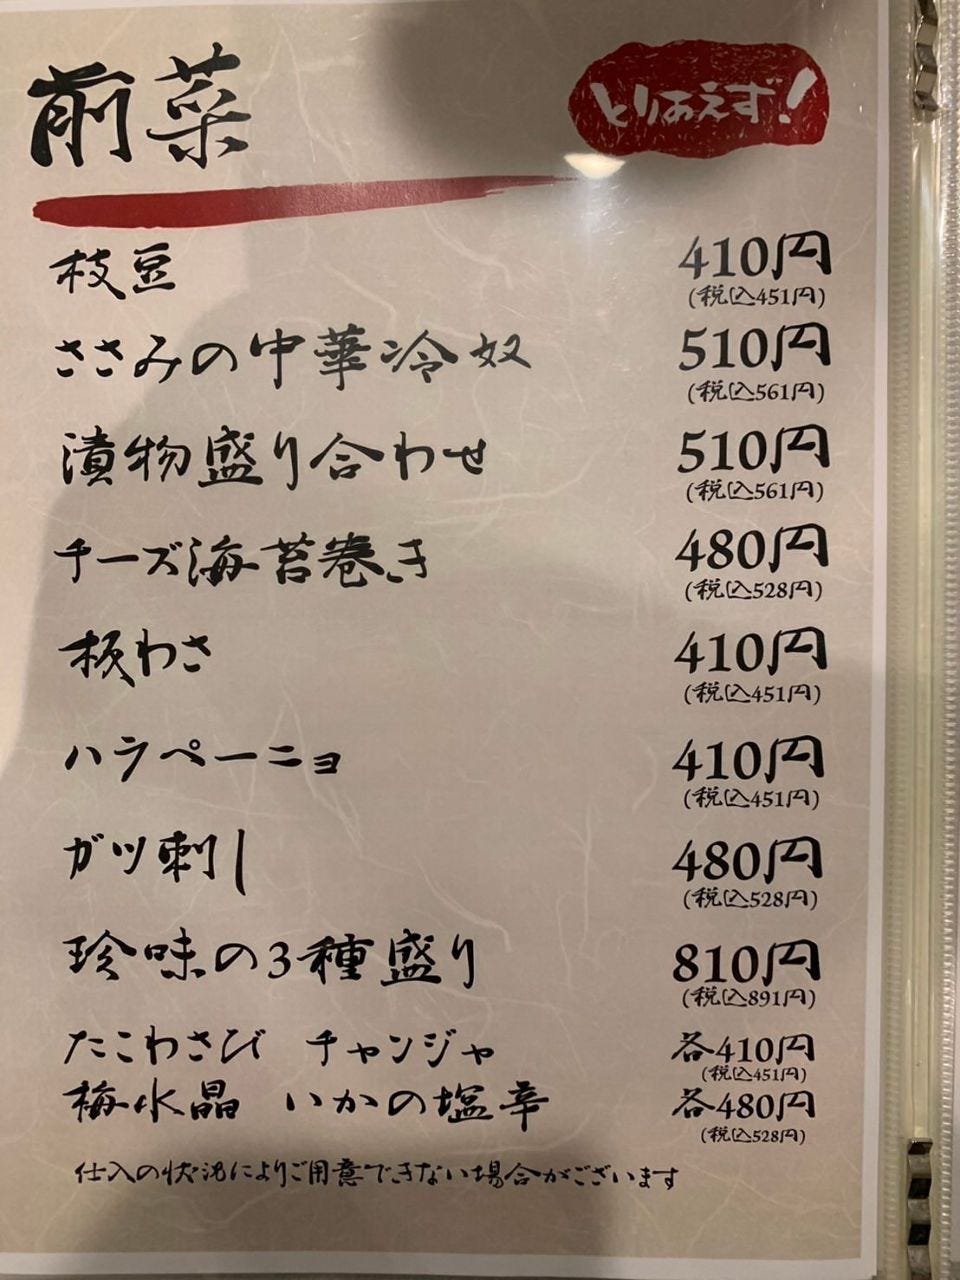 前菜 とりあえず!
枝豆 410円
(税込451円)
ささみの中華冷奴 510円
(税込561円)
漬物盛り合わせ 510円
(税込561円)
チーズ海苔巻き 480円
(税込528円)
板わさ 410円
(税込451円)
ハラペーニョ 410円
(税込451円)
ガツ刺し 480円
(税込528円)
珍味の3種盛り 810円
(税込891円)
たこわさび チャンジャ 各410円
(税込451円)
梅水晶 いかの塩辛 各480円
(税込528円)
仕入の状況によりご用意できない場合がございます